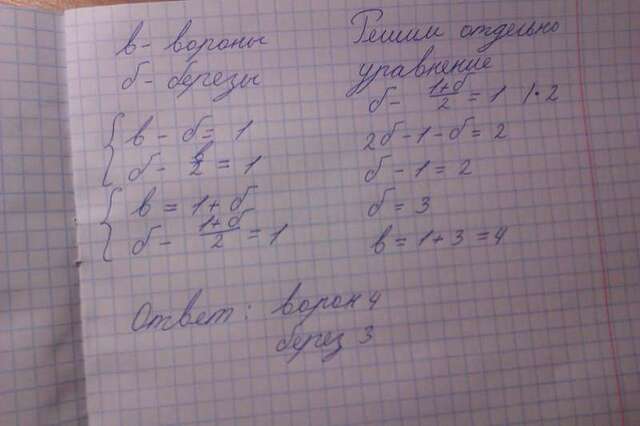 в - вороны
б - березы
в - б = 1
б - в/2 = 1
в = 1 + б
б - (1+б)/2 = 1
Решим отдельно
уравнение
б - (1+б)/2 = 1 | · 2
2б - 1 - б = 2
б - 1 = 2
б = 3
в = 1 + 3 = 4
Ответ: ворон 4
берез 3